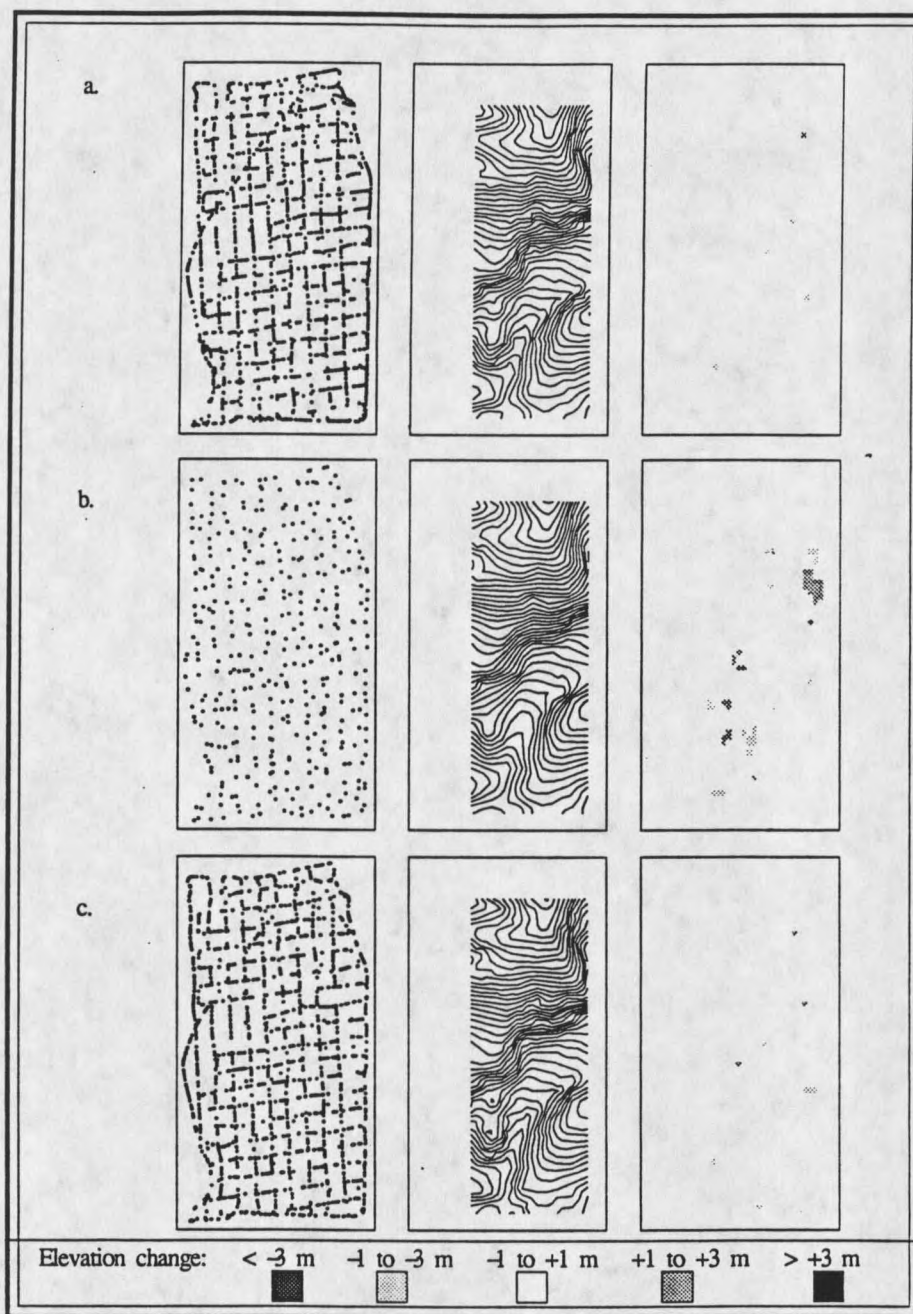 a.
b.
c.
Elevation change: < -3 m -1 to -3 m -1 to +1 m +1 to +3 m > +3 m